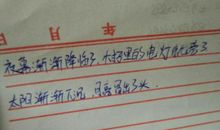 年 月 日
夜幕渐渐降临了 大村里的电灯也亮了
太阳渐渐下沉 月亮露出了头